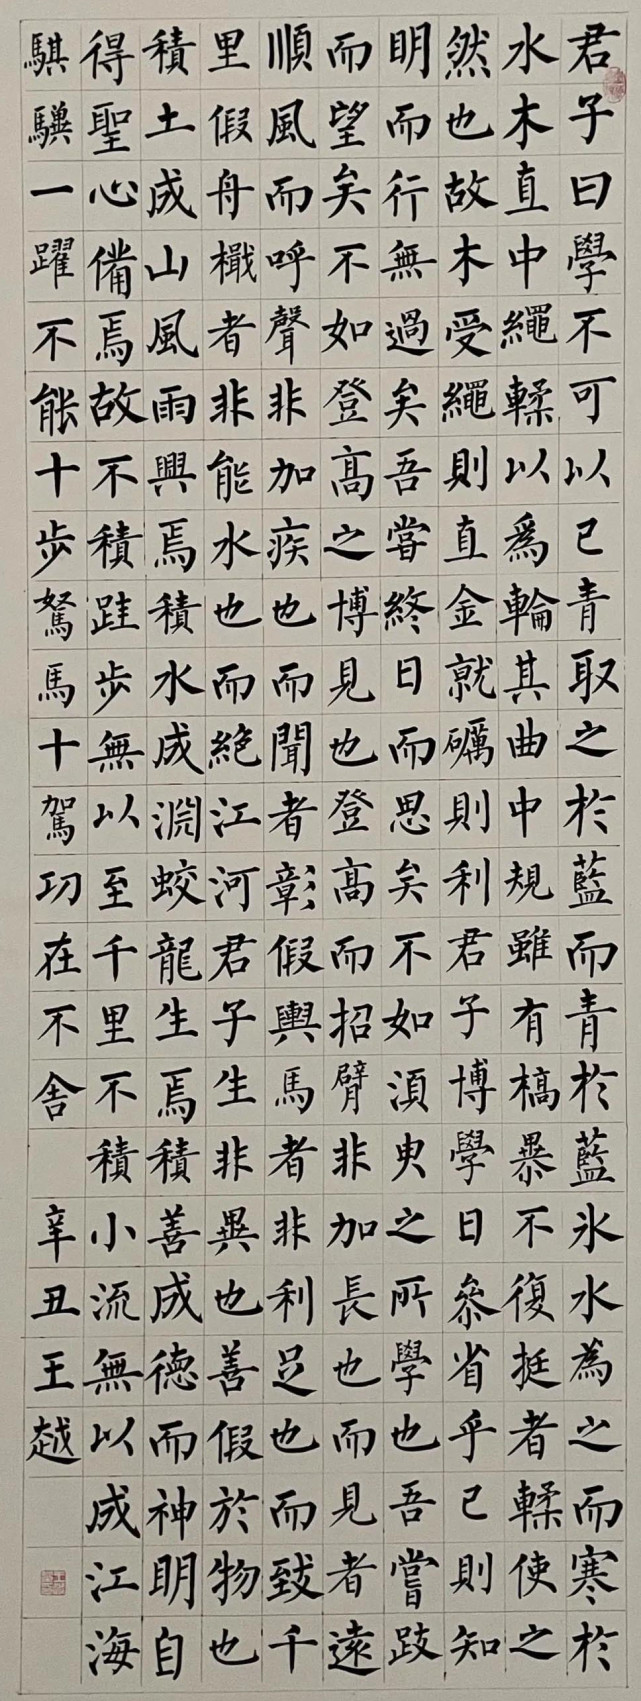 君子曰學不可以已青取之於藍而青於藍冰水為之而寒於
水木直中繩輮以為輪其曲中規雖有槁暴不復挺者輮使之
然也故木受繩則直金就礪則利君子博學日參省乎己則知
明而行無過矣吾嘗終日而思矣不如須臾之所學也吾嘗跂
而望矣不如登高之博見也登高而招臂非加長也而見者遠
順風而呼聲非加疾也而聞者彰假輿馬者非利足也而致千
里假舟檝者非能水也而絕江河君子生非異也善假於物也
積土成山風雨興焉積水成淵蛟龍生焉積善成德而神明自
得聖心備焉故不積跬步無以至千里不積小流無以成江海
騏驥一躍不能十步駑馬十駕功在不舍 辛丑王越